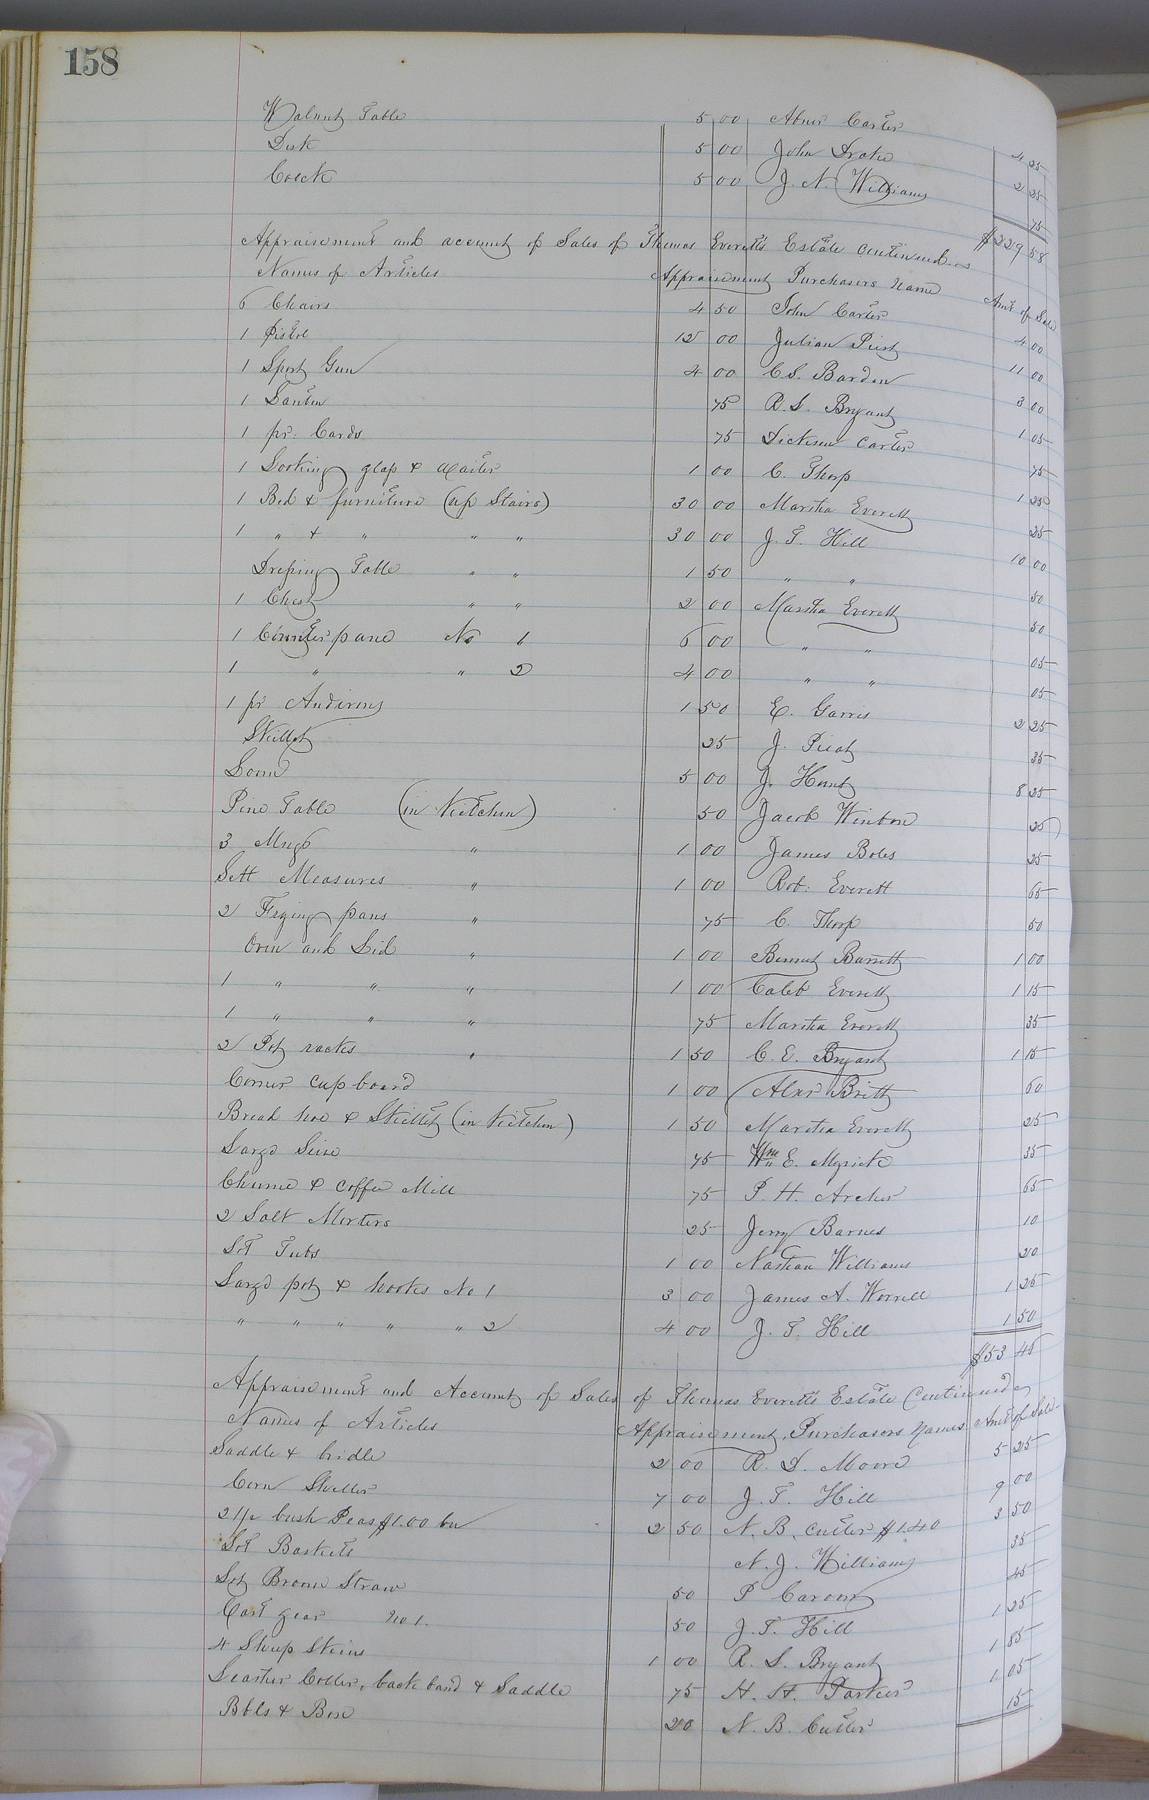 158
Walnut Table 5 00 Abner Carter 4 25
Desk 5 00 John Drake 2 25
Coeck 5 00 J. N. Williams 75
$229 58
Appraisement and account of Sales of Thomas Everett's Estate continued
Names of Articles Appraisement Purchasers name Amt of Sale
6 Chairs 4 50 John Carter 4 00
1 Pistol 12 00 Julian Picot 11 00
1 Sport Gun 4 00 C. S. Barden 3 00
1 Lantern 75 R. S. Bryant 1 05
1 pr. Cards 75 Dickson Carter 75
1 Looking glass & waiter 1 00 C. Thorp 1 25
1 Bed & furniture (up Stairs) 30 00 Martha Everett 25
1 " & " " " 30 00 J. T. Hill 10 00
Dressing Table " " 1 50 " " 50
1 Chest " " 2 00 Martha Everett 50
1 Counterpane No 1 6 00 " " 05
1 " " 2 4 00 " " 05
1 pr Andirons 1 50 E. Garris 2 25
Skillet 25 J. Picot 35
Loom 5 00 J. Hunt 8 25
Pine Table (in Kitchen) 50 Jacob Winbon 25
3 Mugs " 1 00 James Boles 25
Sett Measures " 1 00 Rob: Everett 65
2 Frying pans " 75 C. Thorp 50
Oven and Lid " 1 00 Bennet Barrett 1 00
1 " " " 1 00 Caleb Everett 1 15
1 " " " 75 Martha Everett 35
2 Pot racks " 1 50 C. E. Bryant 1 15
Corner cupboard 1 00 Alxr Britt 60
Break hoe & Skillet (in Kitchen) 1 50 Martha Everett 25
Large Sive 75 Wm E. Myrick 35
Churne & coffee Mill 75 P. H. Archer 65
2 Salt Morters 25 Jerry Barnes 10
Lot Tubs 1 00 Nathan Williams 20
Large pot & hooks No 1 3 00 James A. Worrell 1 25
" " " " " 2 4 00 J. T. Hill 1 50
$53 45
Appraisement and Account of Sales of Thomas Everett's Estate Continued
Names of Articles Appraisement. Purchasers Names. Amt of Sale
Saddle & bridle 2 00 R. D. Moore 5 25
Corn Sheller 7 00 J. T. Hill 9 00
2 1/2 bush Peas $1.00 bu 2 50 N. B. Cutler $1.40 3 50
Lot Baskets N. J. Williams 35
Lot Broom Straw 50 P 45
Cart gear No 1. 50 J. T. Hill 1 25
4 Sheep Skins 1 00 R. S. Bryant 1 85
Leather Coller, back band & Saddle 75 H. H. Parker 1 05
Bbls & Box 20 N. B. Cutler 15